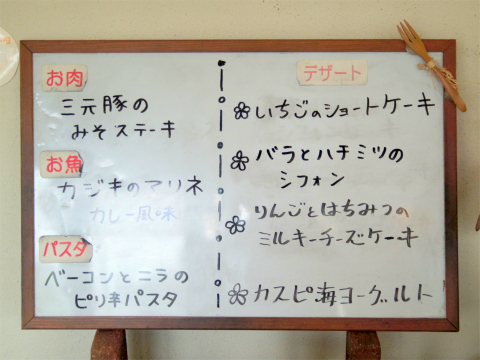 お肉
三元豚の
みそステーキ
お魚
カジキのマリネ
カレー風味
パスタ
ベーコンとニラの
ピリ辛パスタ
デザート
いちごのショートケーキ
バラとハチミツの
シフォン
りんごとはちみつの
ミルキーチーズケーキ
カスピ海ヨーグルト